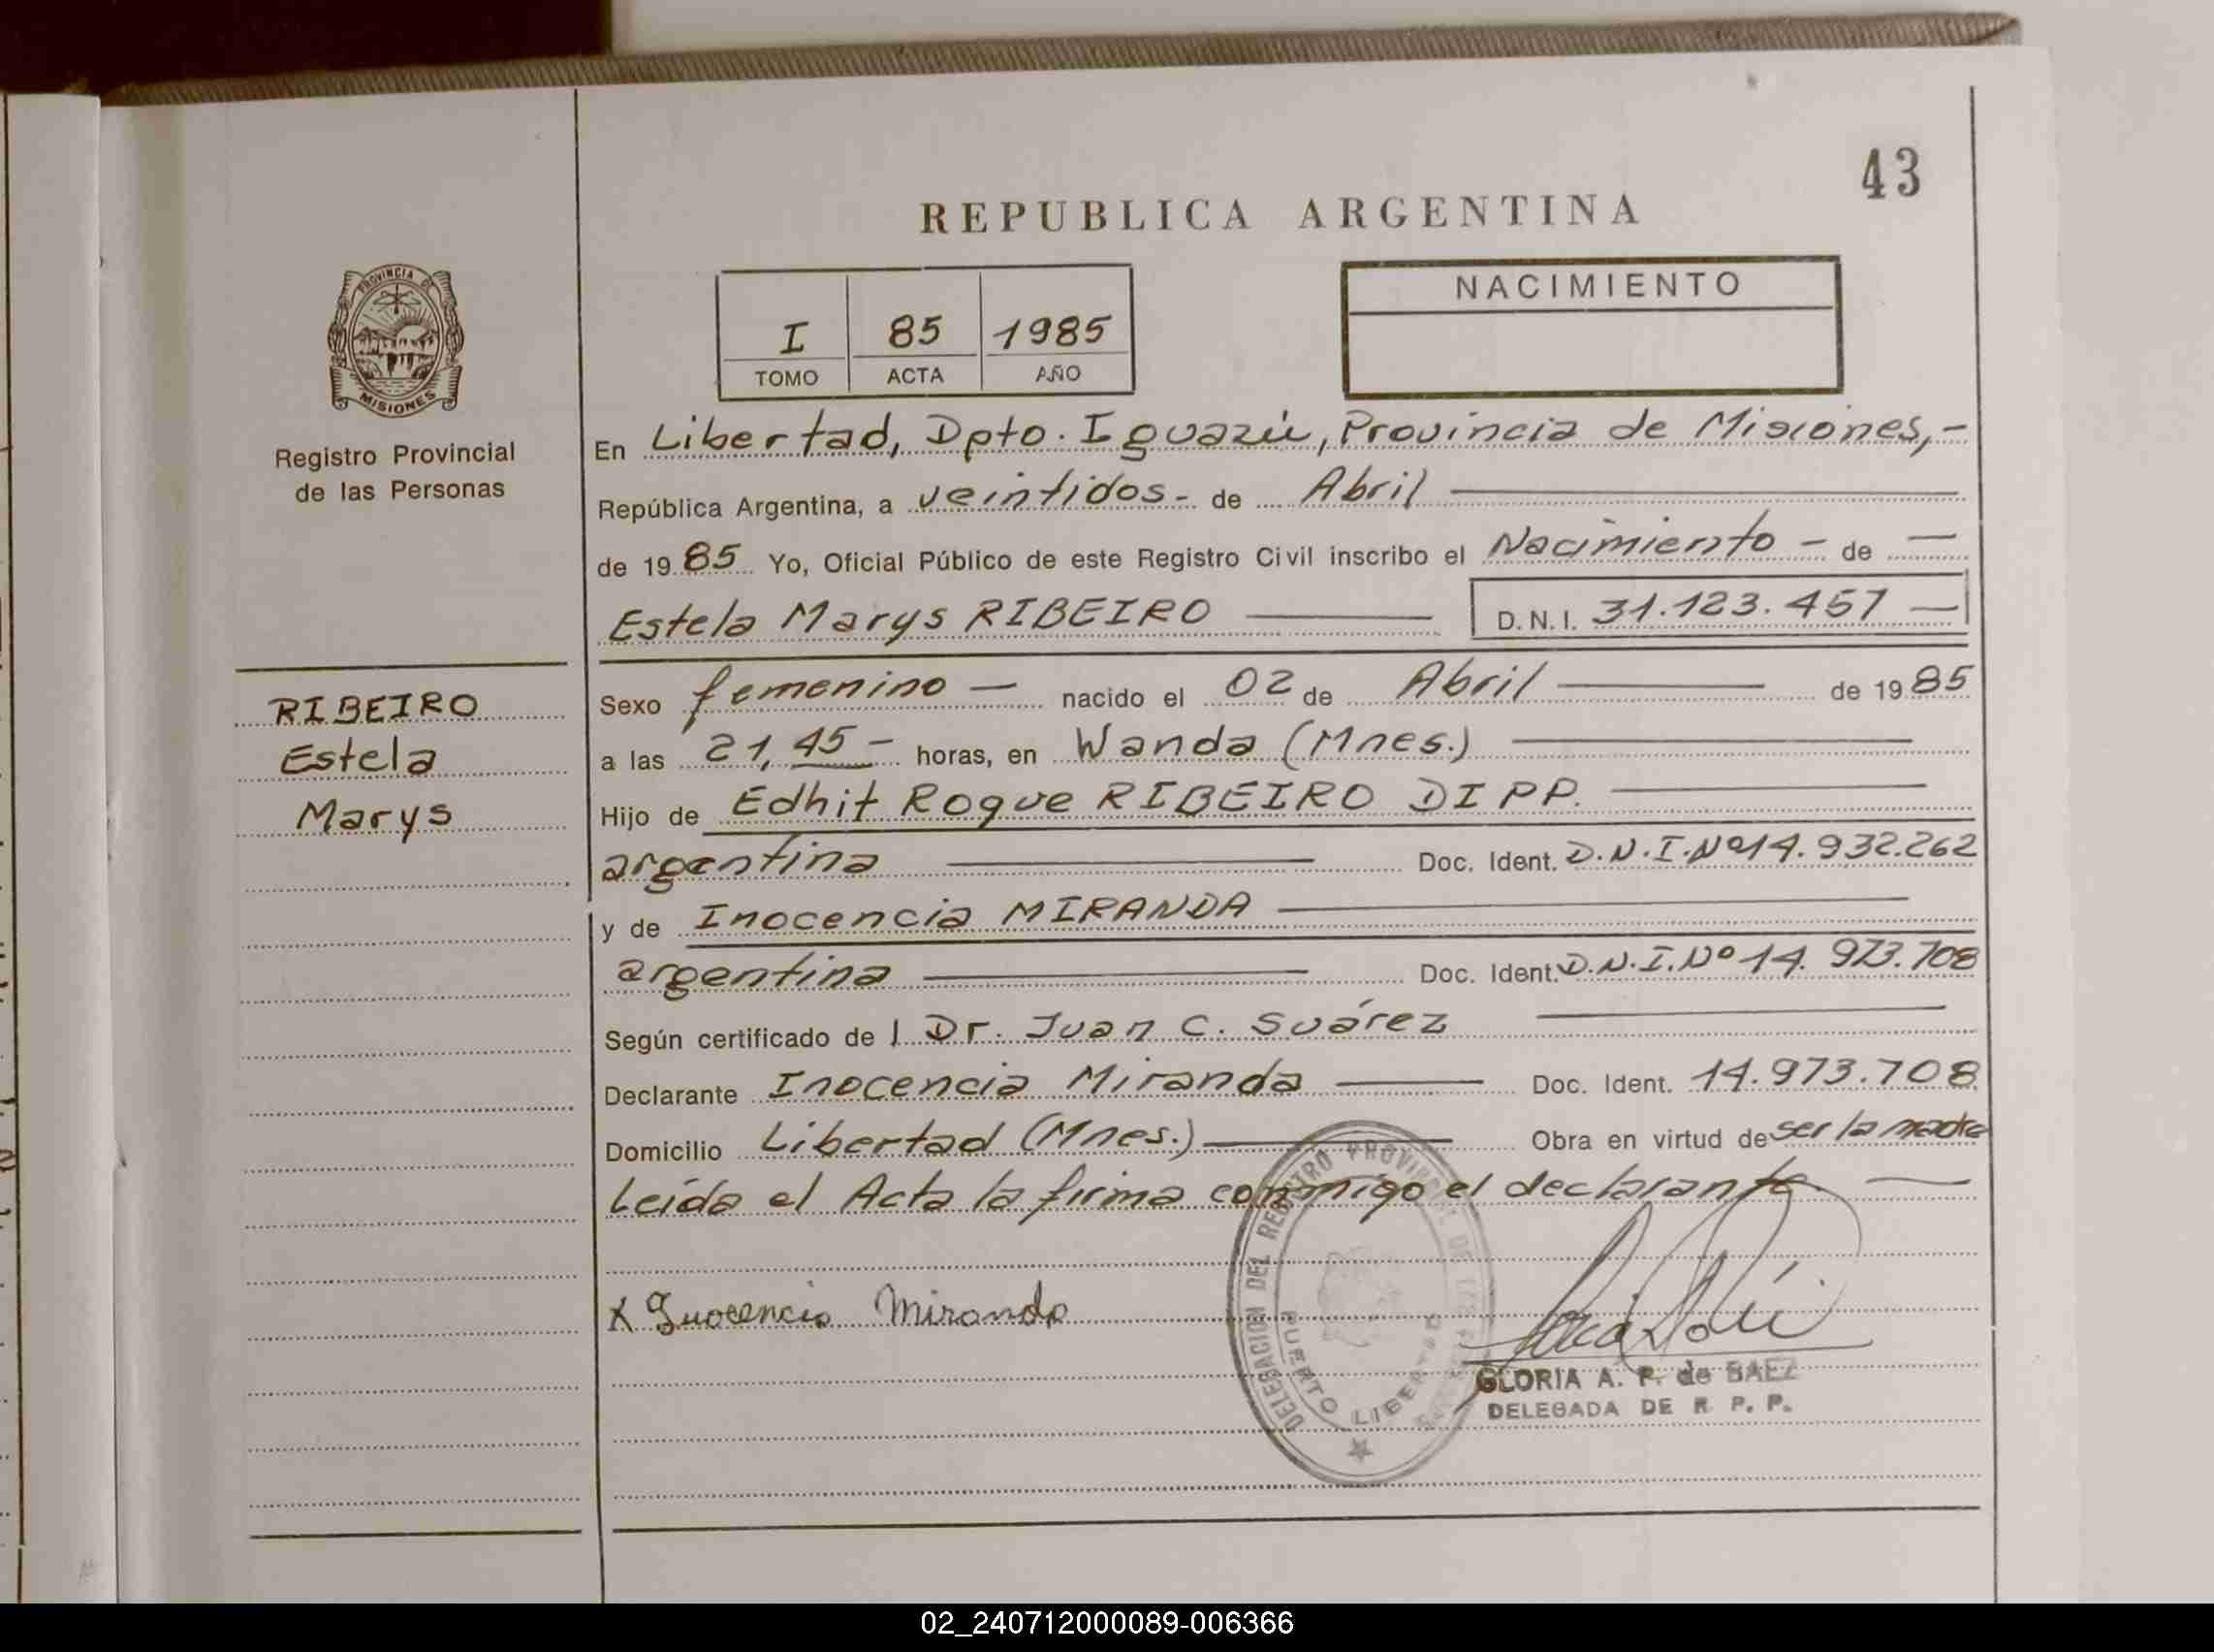 43
REPUBLICA ARGENTINA
NACIMIENTO
I 85 1985
TOMO ACTA AÑO
PROVINCIA DE
MISIONES
Registro Provincial
de las Personas
En Libertad, Dpto. Iguazú, Provincia de Misiones,-
República Argentina, a veintidos- de Abril
de 1985 Yo, Oficial Público de este Registro Civil inscribo el Nacimiento - de —
Estela Marys RIBEIRO — D.N.I. 31.123.457 —
RIBEIRO
Estela
Marys
Sexo femenino — nacido el 02 de Abril — de 1985
a las 21,45 - horas, en Wanda (Mnes.) —
Hijo de Edhit Roque RIBEIRO DIPP. —
argentina — Doc. Ident. D.N.I.Nº14.932.262
y de Inocencia MIRANDA —
argentina — Doc. Ident. D.N.I.Nº14.973.708
Según certificado de l Dr. Juan C. Suárez —
Declarante Inocencia Miranda — Doc. Ident. 14.973.708
Domicilio Libertad (Mnes.) — Obra en virtud de ser la madre
Leída el Acta la firma conmigo el declarante. —
X Inocencia Miranda
DELEGACION DEL REGISTRO PROVINCIAL DE LAS
PUERTO LIBERTAD
GLORIA A. P. de BAEZ
DELEGADA DE R. P. P.
02_240712000089-006366